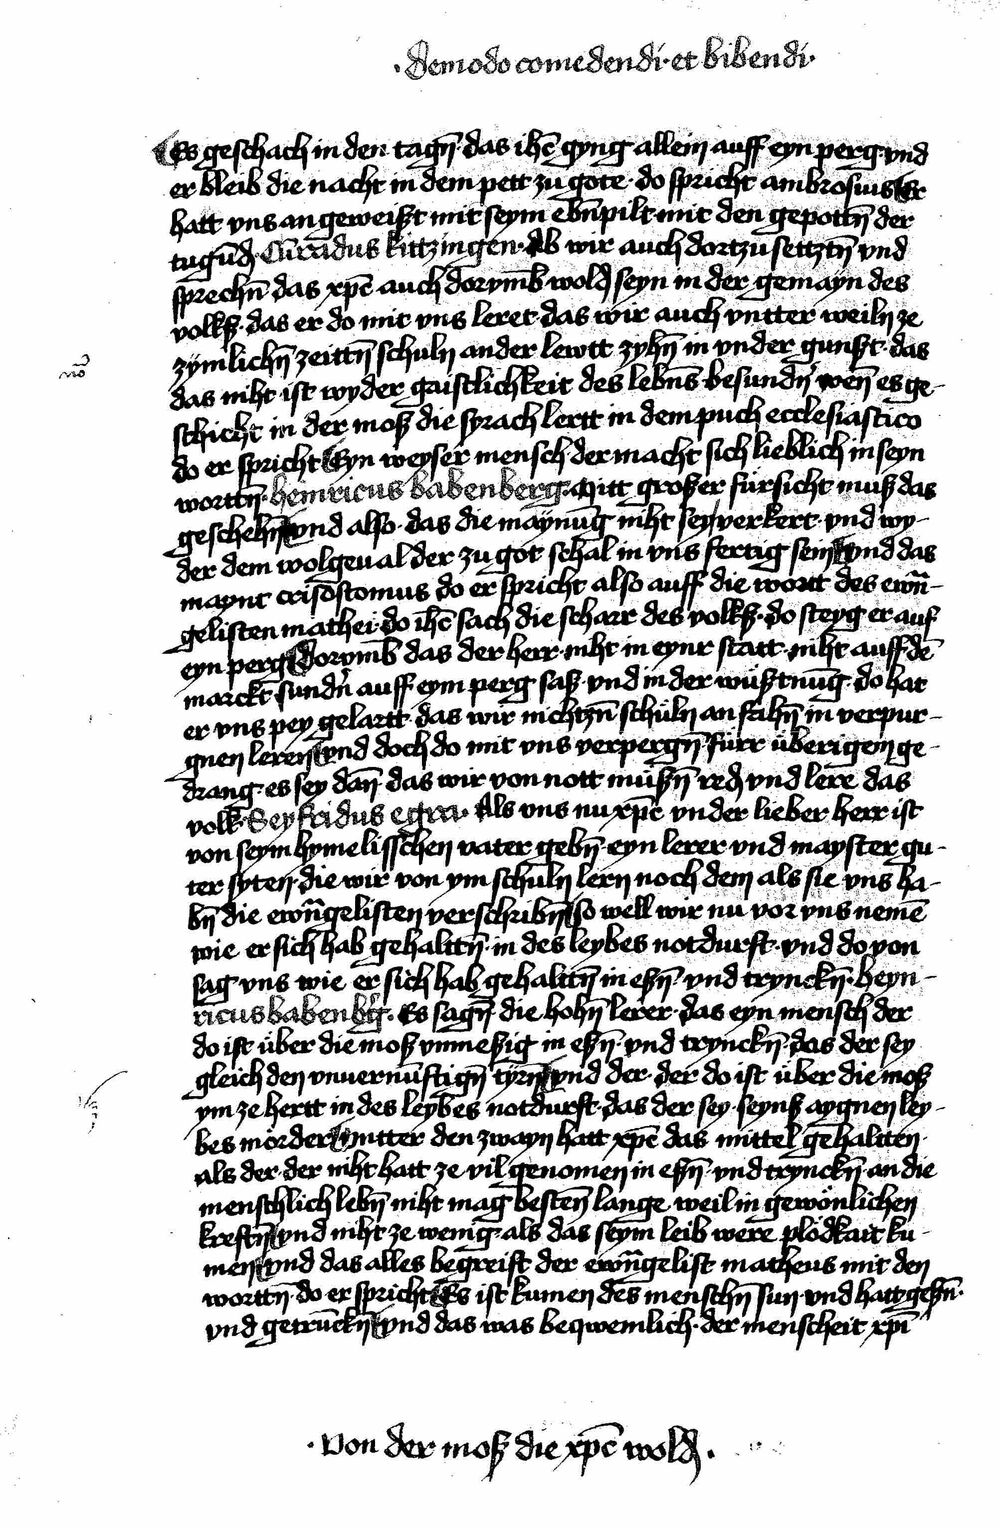 ·Demodo comedendi·et bibendi·
Es geschach in den tagn̄·das ih̄c gyng allein auff eyn perg·vnd
er bleib die nacht in dem pett zu gote·do spricht ambrosius Er
hatt vns angeweißt mit seym ebn̄pilt·mit den gepottn̄ der
tugūd·Cūradus kitzingen·Ab wir auch dortzu settztn̄ vnd
sprechn̄ das xp̄c auch dorym̄b wold seyn in der gemayn des
volkß·das er do mit vns leret·das wir auch vntter weiln ze
zymlichn̄ zeittn̄ schuln ander lewtt zyhn̄ in vnder gunst·das
das niht ist wyder gaistlichkeit des lebn̄s·besundn̄ wen̄ es ge-
schicht in der moß die syrach lertt in dem puch ecclesiastico
do er spricht Eyn weyser mensch·der macht sich lieblich in seyn
worttn̄·heinricus babenberg·Mitt großer fürsicht muß das
geschehn̄ vnd also·das die maynūg niht sey verkert·vnd wy-
der dem wolgeual der zu got schal in vns fertig sein vnd das
maynt crisōstomus do er spricht also auff die wortt des ewn̄-
gelisten mathei·do ih̄c sach die scharr des volkß·do steyg er auf
eyn perg dorym̄b das der herr·niht in eynr statt·niht auff dē
marckt·sundn̄ auff eym perg saß·vnd in der wüstnūg·do hat
er vns pey gelartt·das wir nichtzn̄ schüln an fahn̄ in verpur-
gnen leren vnd doch do mit vns verpergn̄ fürr überigem ge-
drang·es sey dān̄ das wir von nott müßn̄ red vnd lere das
volk·Seyfridus egra·Als vns nu xp̄c vnder lieber herr ist
von seym hymelisschen vater gebn̄·eyn lerer vnd mayster gu-
ter syten·die wir von ym schuln lern noch dem als sie vns ha-
bn̄ die ewn̄gelisten verschribn̄ so well wir nu vor vns nemē
wie er sich hab gehalttn̄·in des leybes notdurft·vnd do von
sag vns wie er sich hab gehalttn̄ in eßn̄·vnd trynckn̄·heyn-
ricus babenb̄g·Es sagn̄ die hohn̄ lerer·das eyn mensch der
do ist über die moß vnmeßig in eßn̄·vnd trynckn̄·das der sey
gleich den vnuernüftign̄ tyrn̄ vnd der·der do ist über die moß
ym ze hertt in des leybes notdurft·das der sey·seynß aygnen ley-
bes mörder vntter den zwayn hatt xp̄c das mittel gehaltten·
als der·der niht hatt ze vil genomen in eßn̄·vnd trynckn̄·an die
menschlich lebn̄ niht mag besten̄ lange weil in gewönlichen
kreftn̄ vnd niht ze wenig·als das seym leib were plödkait ku-
men vnd das alles begreift der ewn̄gelist matheus mit den
worttn̄·do er spricht Es ist kumen des menschn̄ sun·vnd hatt geßn̄·
vnd getrūckn̄ vnd das was beqwemlich·der menscheit xp̄i
·Von der moß die xp̄c wold·